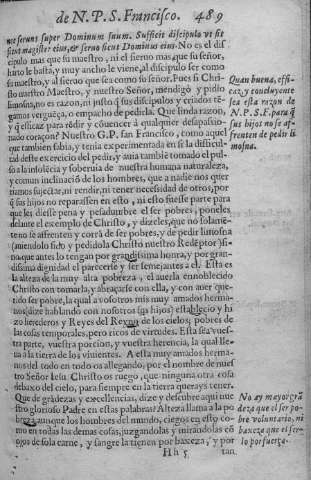 de N. P. S. Francisco. 489
ne seruus super Dominum suum. Sufficit discipulo vt sit
sicut magister eius, & seruo sicut Dominus eius. No es el dis
cipulo mas que su maestro, ni el sieruo mas que su señor,
harto le basta, y muy ancho le viene, al discipulo ser como
su maestro, y al sieruo que sea como su señor. Pues si Chris
to nuestro Maestro, y nuestro Señor, mendigò y pidio
limosna, no es razon, ni justo q̃ sus discipulos y criados tẽ-
gamos verguẽça, o empacho de pedirla. Que linda razon,
y q̃ eficaz para rẽdir y cõuencer à qualquier desapasio-
nado coraçon? Nuestro G. P. san Francisco, como aquel
que tambien sabia, y tenia experimentada en si la dificul-
tad deste exercicio del pedir, y auia tambiẽ tomado el pul-
so a la insolẽcia y soberuia de nuestra humana naturaleza,
y comun inclinaciõ de los hombres, que a nadie nos quer
riamos sujectar, ni rendir, ni tener necesidad de otros, por
q̃ sus hijos no reparassen en esto, ni esto fuesse parte para
que les diesse pena y pesadumbre el ser pobres, poneles
delante el exemplo de Christo, y dizeles, que no solamẽ-
te no se afrenten y corrã de ser pobres, y de pedir limosna
(auiendolo sido y pedidola Christo nuestro Redẽptor) si-
na que antes lo tengan por grandissima honra, y por gran-
dissima dignidad el parecerse y ser semejantes a el. Esta es
la alteza de la muy alta pobreza, el auerla ennoblecido
Christo con tomarla, y abraçarse con ella, y con auer que-
tido ser pobre, la qual a vosotros mis muy amados herma-
nos (dize hablando con nosotros sus hijos) establecio y hi
zo herederos y Reyes del Reyno de los cielos; pobres de
las cosas temporales, pero ricos de virtudes. Esta sea vues-
tra parte, vuestra porsion, y vuestra herencia, la qual lle-
ua a la tierra de los viuientes. A esta muy amados herma-
nos del todo en todo os allegando, por el nombre de nues
tro Señor Iesu Christo os ruego, que ninguna otra cosa
debaxo del cielo, para siempre en la tierra querays tener.
Que de grãdezas y excellencias, dize y descubre aqui nue
stro glorioso Padre en estas palabras? Alteza llama a la po
breza aunque los hombres del mundo, ciegos en esto co-
mo en todas las demas cosas, juzgandolas y mirãdolas cõ
ojos de sola carne, y sangre la tienen por baxeza, y por
H h 5 tan
Quan buena, effi
caz, y concluyente
sea esta razon de
N. P. S. F. para q̃
sus hijos no se af-
frenten de pedir li
mosna.
No ay mayor grã
deza que el ser po-
bre voluntario, ni
baxeza que el ser-
lo por fuerza.